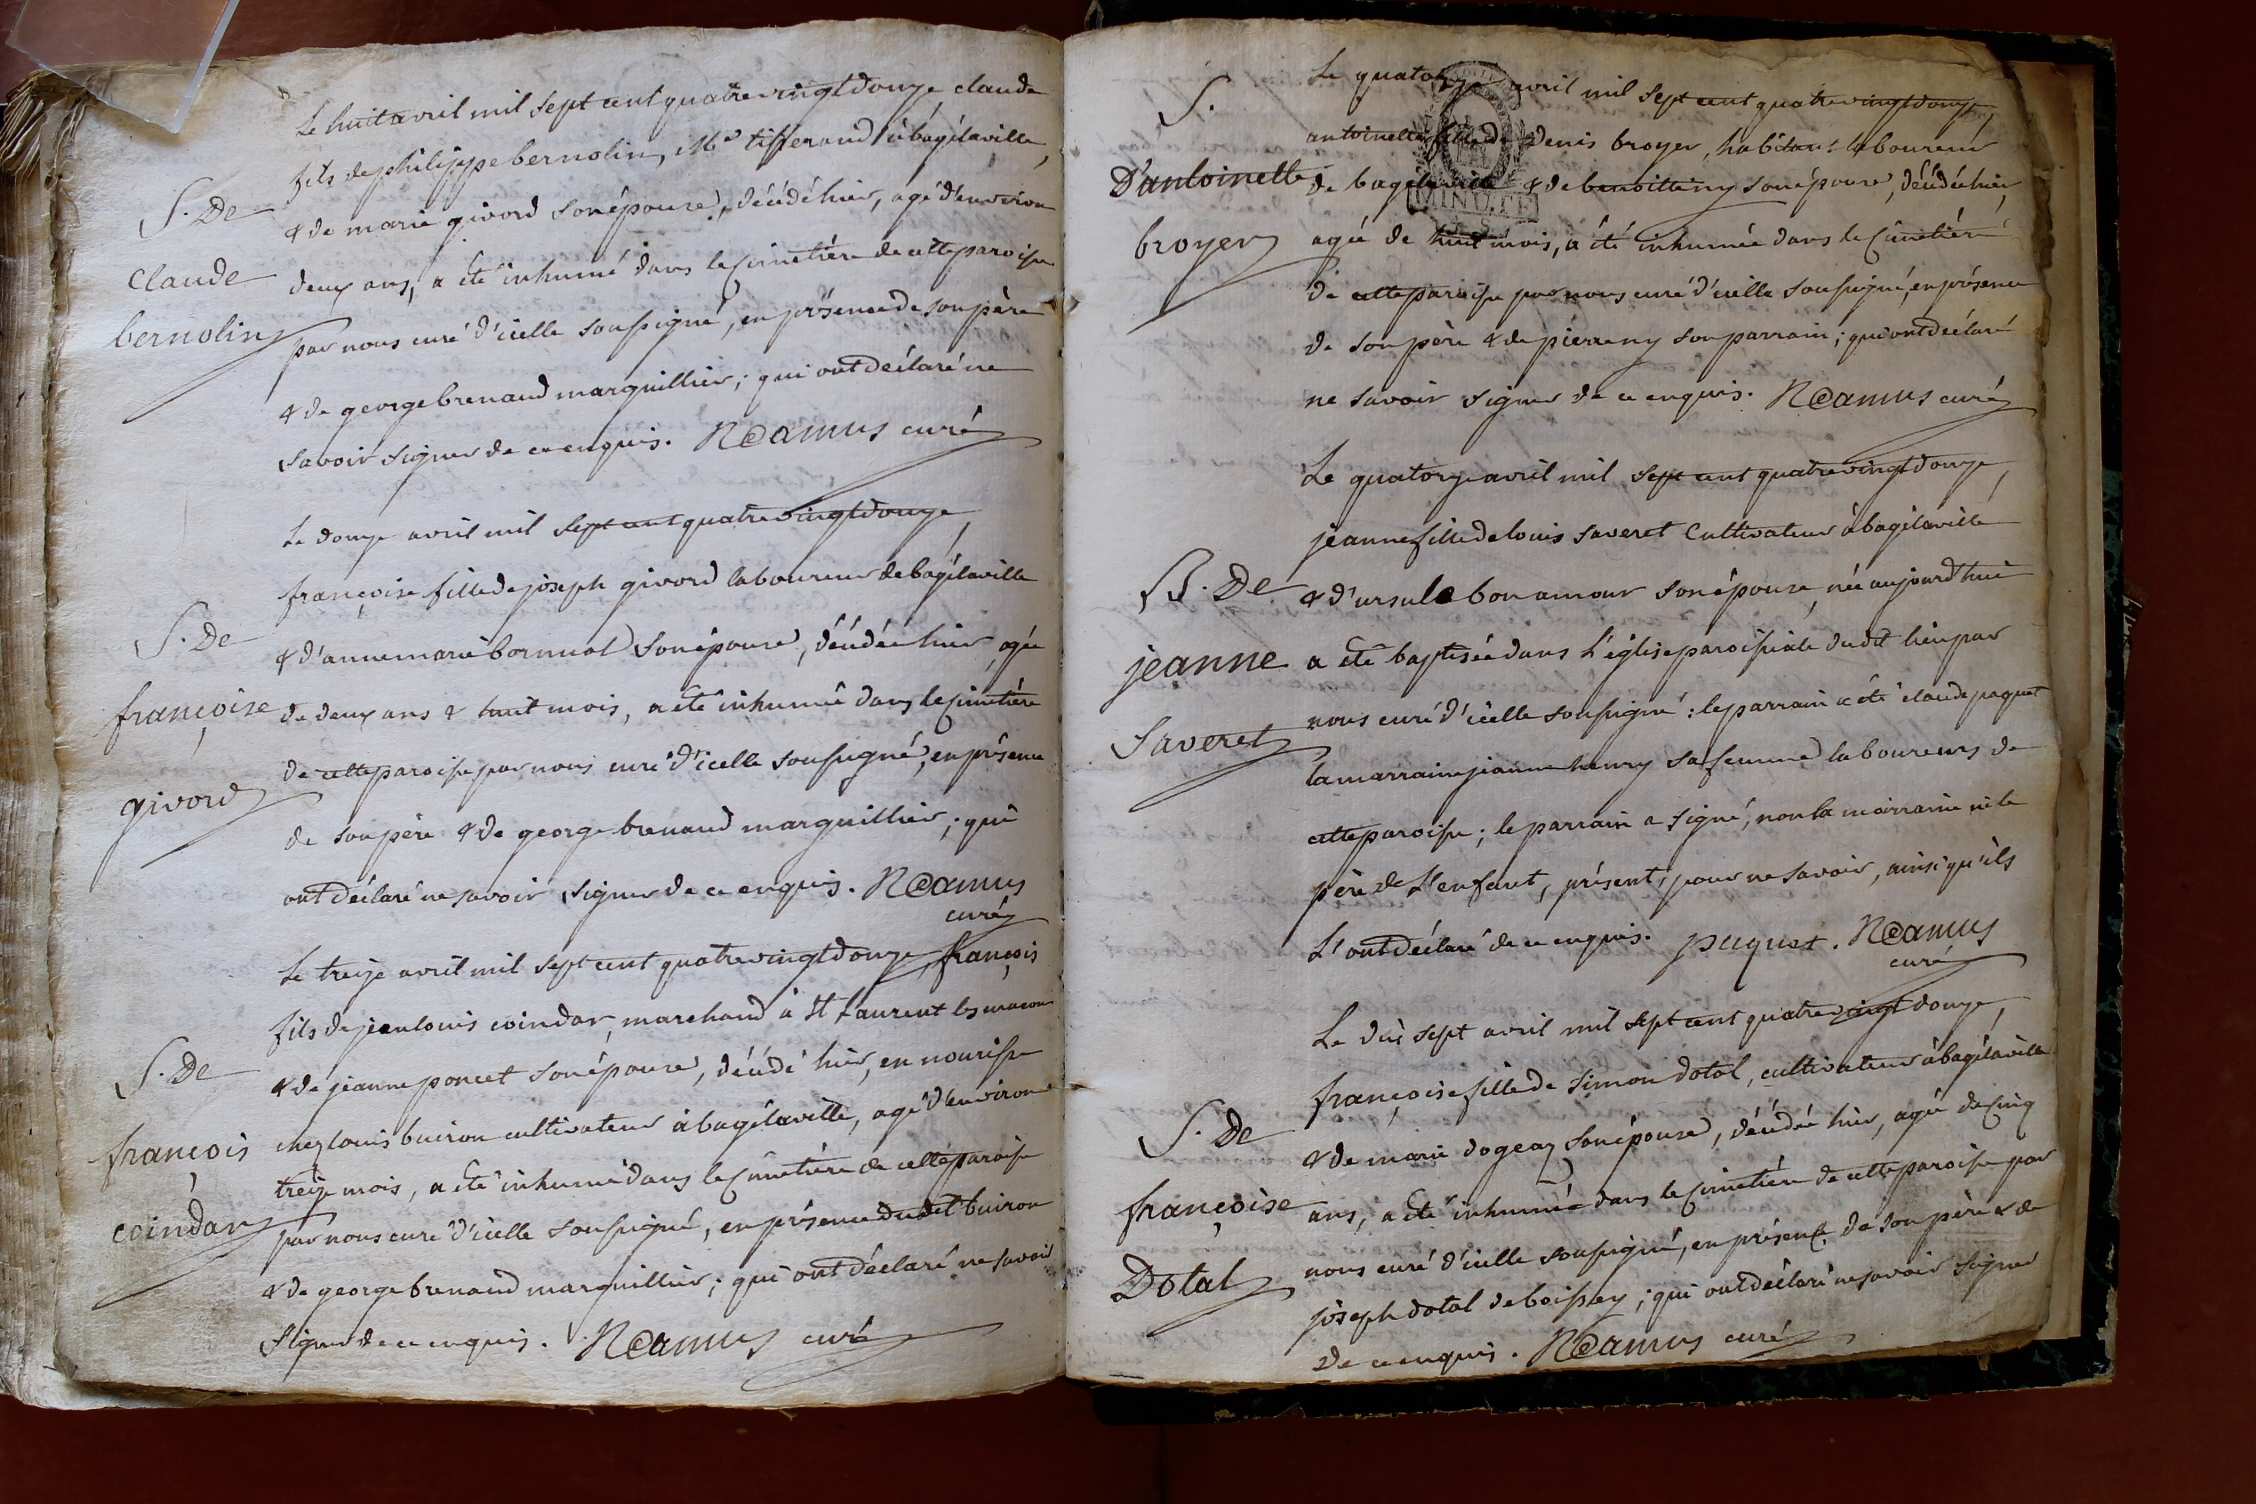 Le huit avril mil sept cent quatre vingt douze claude
fils de philippe bernolin, Md tisserand à bagélaville,
S. De
& de marie givord son épouse, décédé hier, agé d'environ
claude
deux ans, a été inhumé dans le cimetière de cette paroisse
bernolin
par nous curé d'icelle soussigné, en présence de son père
& de george brenaud marguillier; qui ont déclaré ne
savoir signer de ce enquis. NCamus curé
Le douze avril mil sept cent quatre vingt douze,
françoise fille de joseph givord laboureur de bagélaville
S. De
& d'anne marie bornuat son épouse, décédée hier, agée
françoise
de deux ans & huit mois, a été inhumée dans le cimetière
de cette paroisse par nous curé d'icelle soussigné, en présence
givord
de son père & de george brenaud marguillier; qui
ont déclaré ne savoir signer de ce enquis. NCamus
curé
Le treize avril mil sept cent quatre vingt douze, françois
fils de jean louis coindar, marchand à St Laurent les macon
S. De
& de jeanne poncet son épouse, décédé hier, en nourisse
françois
chez louis buiron cultivateur à bagélaville, agé d'environ
treize mois, a été inhumé dans le cimetière de cette paroisse
coindar
par nous curé d'icelle soussigné, en présence dudit buiron
& de george brenaud marguillier; qui ont déclaré ne savoir
signer de ce enquis. NCamus curé
Le quatorze avril mil sept cent quatre vingt douze,
S.
antoinette fille de Denis broyer, habitant laboureur
D'antoinette
de bagélaville & de son épouse, décédée hier,
broyer
agée de huit mois, a été inhumée dans le cimetière
MINUTE
de cette paroisse par nous curé d'icelle soussigné, en présence
de son père & de son parrain; qui ont déclaré
ne savoir signer de ce enquis. NCamus curé
Le quatorze avril mil sept cent quatre vingt douze,
jeanne fille de louis saveret Cultivateur à bagélaville
B. De
& d'ursule bonamour son épouse, née aujourd'hui
jeanne
a été baptisée dans l'église paroissiale dudit lieu par
nous curé d'icelle soussigné: le parrain a été claude paquet
saveret
la marraine jeanne henry sa femme laboureurs de
cette paroisse; le parrain a signé, non la marraine ni le
père de l'enfant, présent, pour ne savoir, ainsi qu'ils
l'ont déclaré de ce enquis. paquet. NCamus
curé
Le dix sept avril mil sept cent quatre vingt douze,
françoise fille de simon dotal, cultivateur à bagélaville
S. De
& de marie dogeay son épouse, décédée hier, agée de cinq
françoise
ans, a été inhumée dans le cimetière de cette paroisse par
nous curé d'icelle soussigné, en présence de son père & de
Dotal
joseph dotal de boissey; qui ont déclaré ne savoir signé
de ce enquis. NCamus curé